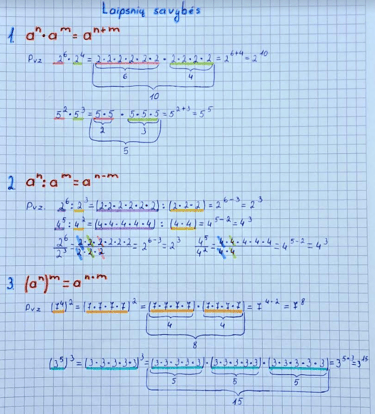 Laipsnių savybės
1. aⁿ · aᵐ = aⁿ⁺ᵐ
Pvz 2⁶ · 2⁴ = 2·2·2·2·2·2 · 2·2·2·2 = 2⁶⁺⁴ = 2¹⁰
6 4
10
5² · 5³ = 5·5 · 5·5·5 = 5²⁺³ = 5⁵
2 3
5
2 aⁿ : aᵐ = aⁿ⁻ᵐ
Pvz. 2⁶ : 2³ = (2·2·2·2·2·2) : (2·2·2) = 2⁶⁻³ = 2³
4⁵ : 4² = (4·4·4·4·4) : (4·4) = 4⁵⁻² = 4³
2⁶/2³ = 2·2·2·2·2·2/2·2·2 = 2⁶⁻³ = 2³ 4⁵/4² = 4·4·4·4·4/4·4 = 4⁵⁻² = 4³
3. (aⁿ)ᵐ = aⁿ·ᵐ
Pvz (7⁴)² = (7·7·7·7)² = (7·7·7·7) · (7·7·7·7) = 7⁴·² = 7⁸
4 4
8
(3⁵)³ = (3·3·3·3·3)³ = (3·3·3·3·3) · (3·3·3·3·3) · (3·3·3·3·3) = 3⁵·³ = 3¹⁵
5 5 5
15